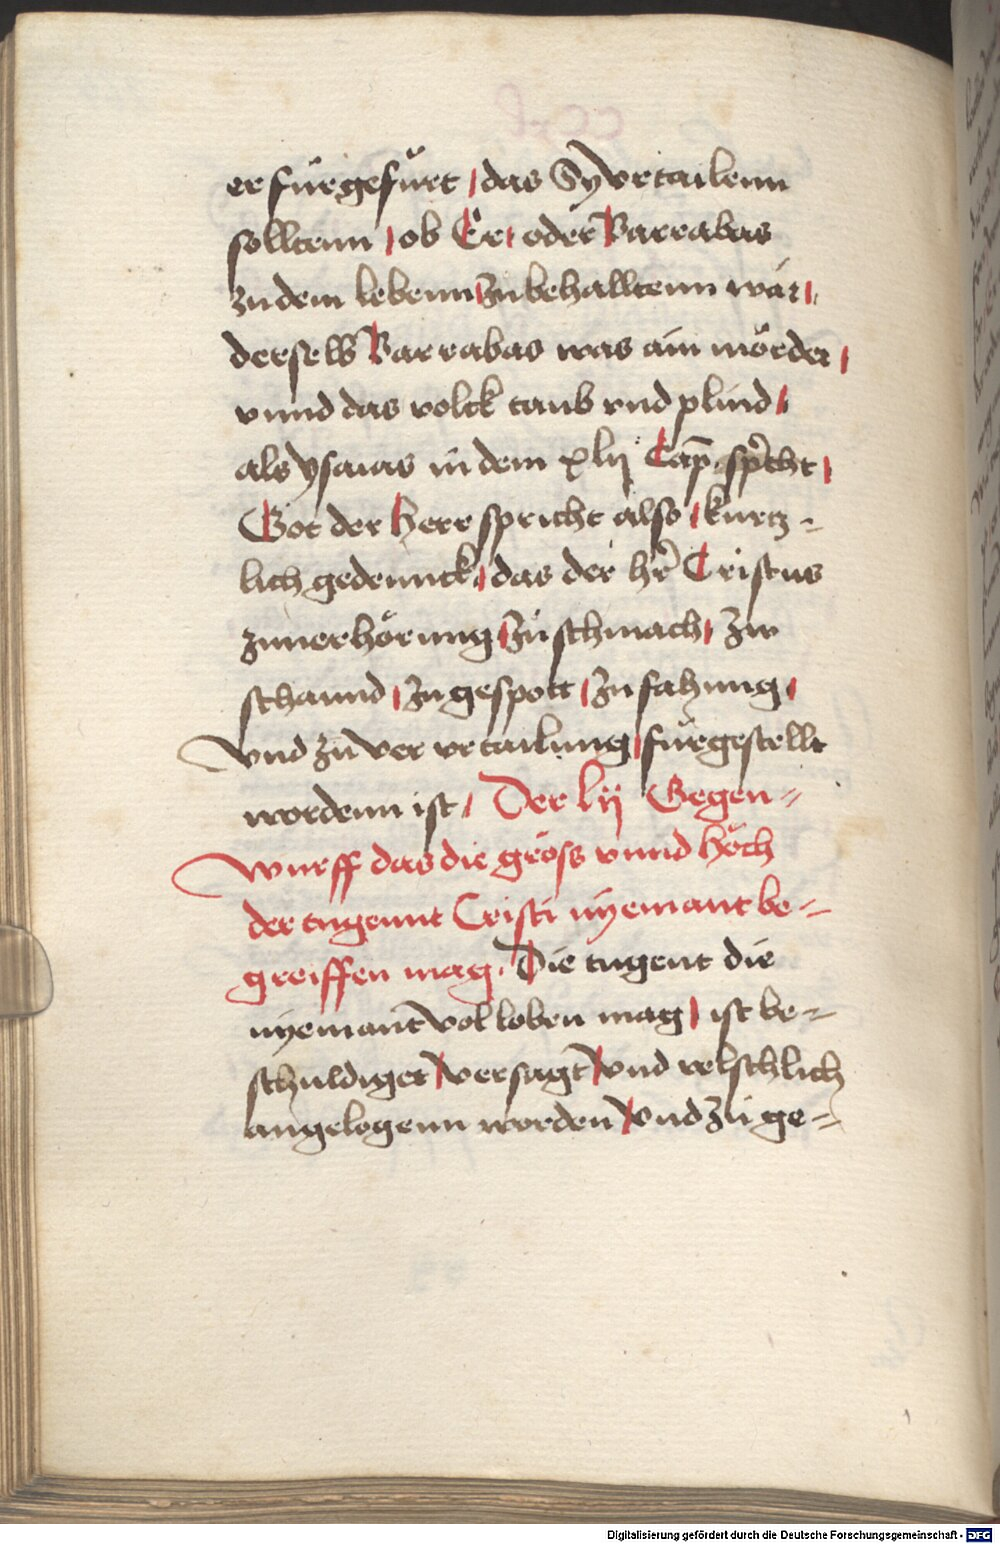 er fürgefürt / das Sy vrtailenn
solltenn / ob Er / oder Barrabas
zu dem lebenn / zubehalltenn wär /
derselb Barrabas was ain mörder /
vnnd das volck taub vnd plind /
als ysaias in dem xlij Cap̄. sp̄cht /
Got der Herr spricht also / kurtz-
lich gedennck / das der hr̄ Cristus
zuuerhörung / zů schmach / zw
schannd / zu gespött / zu fahung /
vnd zů ver vrtailung / fürgestellt
wordenn ist / Der lij Gegen-
wurff das die gröss vnnd höch
der tugennt Cristi nyemant be-
greiffen mag. Die tugent die
nyemant vol loben mag / ist be-
schuldiget / versagt / vnd velschlich
angelogenn worden / vnd zů ge-
Digitalisierung gefördert durch die Deutsche Forschungsgemeinschaft - DFG